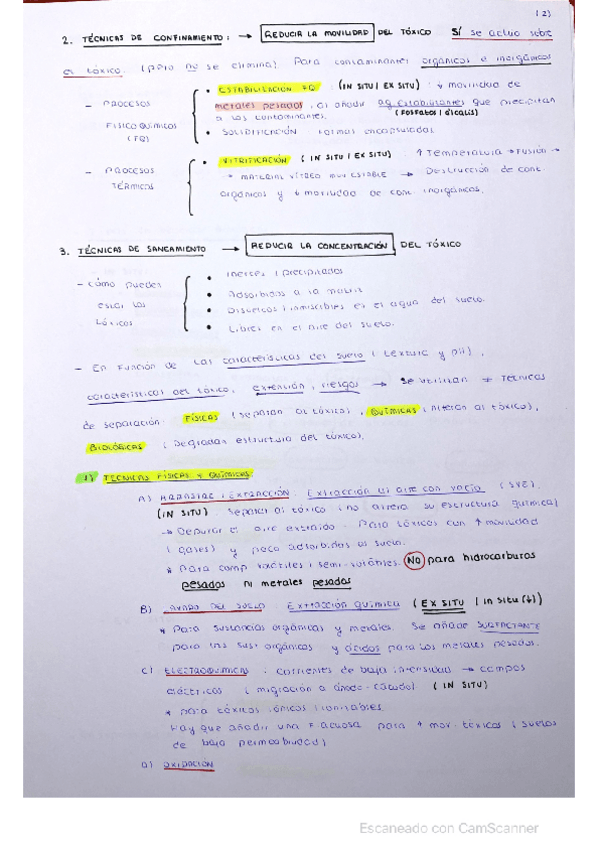 (2)
2. TÉCNICAS DE CONFINAMIENTO: → REDUCIR LA MOVILIDAD DEL TÓXICO Sí se actúa sobre
el tóxico. (pero no se elimina) Para contaminantes orgánicos e inorgánicos
- PROCESOS FÍSICOQUÍMICOS (FQ)
• ESTABILIZACIÓN FQ: (IN SITU / EX SITU): ↓ movilidad de
metales pesados, al añadir ag. estabilizantes que precipitan
a los contaminantes. (Fosfatos / álcalis)
• SOLIDIFICACIÓN: formas encapsuladas
- PROCESOS TÉRMICOS
• VITRIFICACIÓN (IN SITU / EX SITU): ↑ Temperatura → Fusión →
MATERIAL VÍTREO MUY ESTABLE → Destrucción de cont.
orgánicos y ↓ movilidad de cont. inorgánicos.
3. TÉCNICAS DE SANEAMIENTO → REDUCIR LA CONCENTRACIÓN DEL TÓXICO
- Cómo pueden
estar los
tóxicos
• Inertes / precipitados
• Adsorbidos a la matriz
• Disueltos / inmiscibles en el agua del suelo.
• Libres en el aire del suelo.
- En función de las características del suelo (textura y pH),
características del tóxico, extensión, riesgos → se utilizan ≠ técnicas
de separación: FÍSICAS (separan al tóxico), QUÍMICAS (alteran al tóxico),
BIOLÓGICAS (Degradan estructura del tóxico).
1) TÉCNICAS FÍSICAS Y QUÍMICAS
A) ARRASTRE / EXTRACCIÓN: Extracción del aire con vacío (SVE).
(IN SITU) Separar al tóxico (no altera su estructura química)
→ Depurar el aire extraído. Para tóxicos con ↑ movilidad
(gases) y poco adsorbidos al suelo.
* Para comp. volátiles / semi-volátiles. NO para hidrocarburos
pesados ni metales pesados
B) LAVADO DEL SUELO: Extracción química (EX SITU / in situ (↓))
* Para sustancias orgánicas y metales. Se añade SURFACTANTE
para las sust. orgánicas y ácidos para los metales pesados.
C) ELECTROQUÍMICAS: corrientes de baja intensidad → campos
eléctricos (migración a ánodo-cátodo). (IN SITU)
* para tóxicos iónicos / ionizables.
Hay que añadir una F. acuosa para ↑ mov. tóxicos (suelos
de baja permeabilidad)
d) OXIDACIÓN
Escaneado con CamScanner